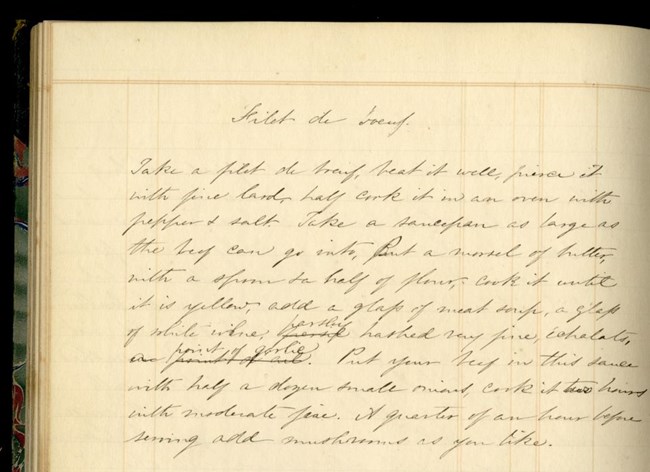 Filet de boeuf.
Take a filet de boeuf, beat it well, pierce it
with fine lard, half cook it in an oven with
pepper & salt. Take a saucepan as large as
the beef can go into, Put a morsel of butter,
with a spoon & a half of flour, cook it until
it is yellow, add a glass of meat soup, a glass
of white wine, parsley hashed very fine, échalots,
a point of garlic. Put your beef in this sauce
with half a dozen small onions, cook it two hours
with moderate fire. A quarter of an hour before
serving add mushrooms as you like.